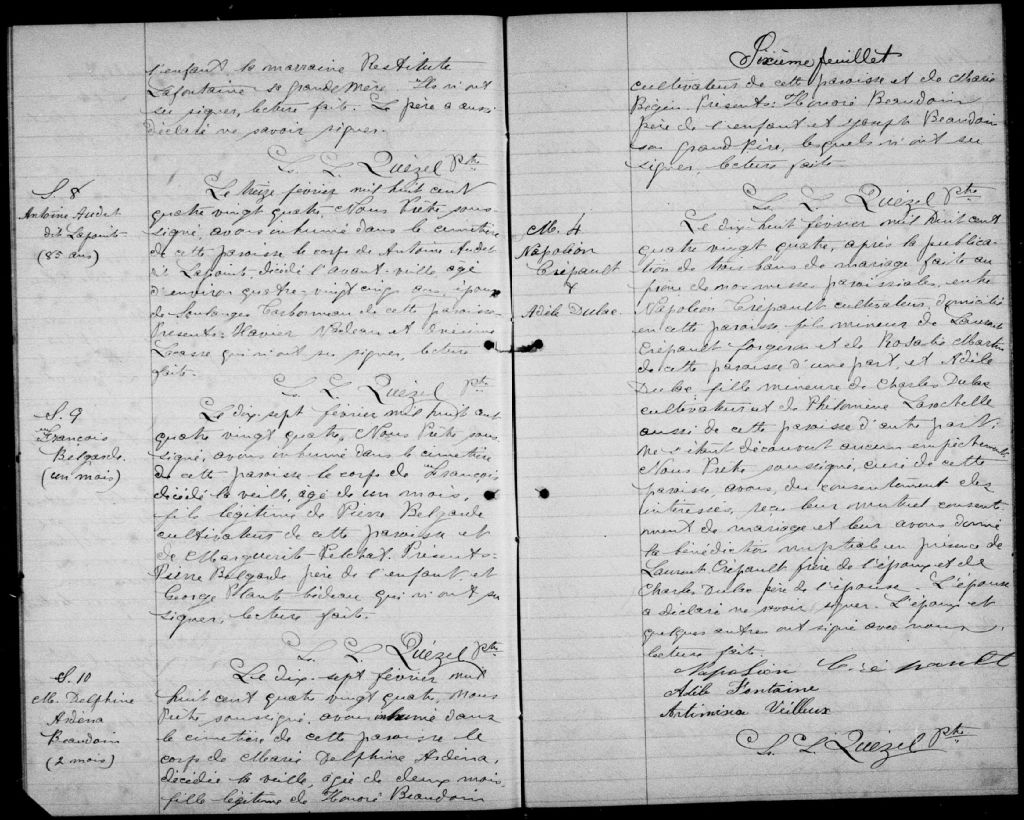 l'enfant, la marraine Restitute
Lafontaine sa grand'mère. Ils n'ont
su signer, lecture faite. Le père a aussi
déclaré ne savoir signer.
L. L. Quézel Ptre
S. 8
Antoine Audet
dit Lapointe
(85 ans)
Le treize février mil huit cent
quatre vingt quatre, Nous Prêtre sous-
signé, avons inhumé dans le cimetière
de cette paroisse le corps de Antoine Audet
dit Lapointe décédé l'avant-veille âgé
d'environ quatre-vingt cinq ans, époux
de Soulanges de cette paroisse.
Présents: Xavier Nadeau et
qui n'ont su signer, lecture
faite.
L. L. Quézel Ptre
S. 9
François
Belgarde
(un mois)
Le dix-sept février mil huit cent
quatre vingt quatre, Nous Prêtre sous-
signé, avons inhumé dans le cimetière
de cette paroisse le corps de François
décédé la veille, âgé de un mois,
fils légitime de Pierre Belgarde
cultivateur de cette paroisse et
de Marguerite Pelchat. Présents:
Pierre Belgarde père de l'enfant et
George Plante bedeau qui n'ont su
signer, lecture faite.
L. L. Quézel Ptre
S. 10
M. Delphine
Ardéna
Beaudoin
(2 mois)
Le dix-sept février mil
huit cent quatre vingt quatre, Nous
Prêtre soussigné, avons inhumé dans
le cimetière de cette paroisse le
corps de Marie Delphine Ardéna,
décédée la veille, âgée de deux mois,
fille légitime de Honoré Beaudoin
Sixième feuillet
cultivateur de cette paroisse et de Marie
Bégin. Présents: Honoré Beaudoin
père de l'enfant et Joseph Beaudoin
son grand père, lesquels n'ont su
signer, lecture faite.
L. L. Quézel Ptre
M. 4
Napoléon
Crépault
&
Adèle Dulac
Le dix-huit février mil huit cent
quatre vingt quatre, après la publica-
tion de trois bans de mariage faite au
prône de nos messes paroissiales, entre
Napoléon Crépault cultivateur, domicilié
en cette paroisse fils mineur de Laurent
Crépault forgeron et de Rosalie Martin
de cette paroisse d'une part, et Adèle
Dulac fille mineure de Charles Dulac
cultivateur et de Philomène Larochelle
aussi de cette paroisse d'autre part;
ne s'étant découvert aucun empêchement
Nous Prêtre soussigné, curé de cette
paroisse, avons, du consentement des
intéressés, reçu leur mutuel consent-
ement de mariage et leur avons donné
la bénédiction nuptiale en présence de
Laurent Crépault frère de l'époux et de
Charles Dulac père de l'épouse. L'épouse
a déclaré ne savoir signer. L'époux et
quelques autres ont signé avec nous,
lecture faite.
Napoléon Crépault
Adèle Fontaine
Artimisa Veilleux
L. L. Quézel Ptre